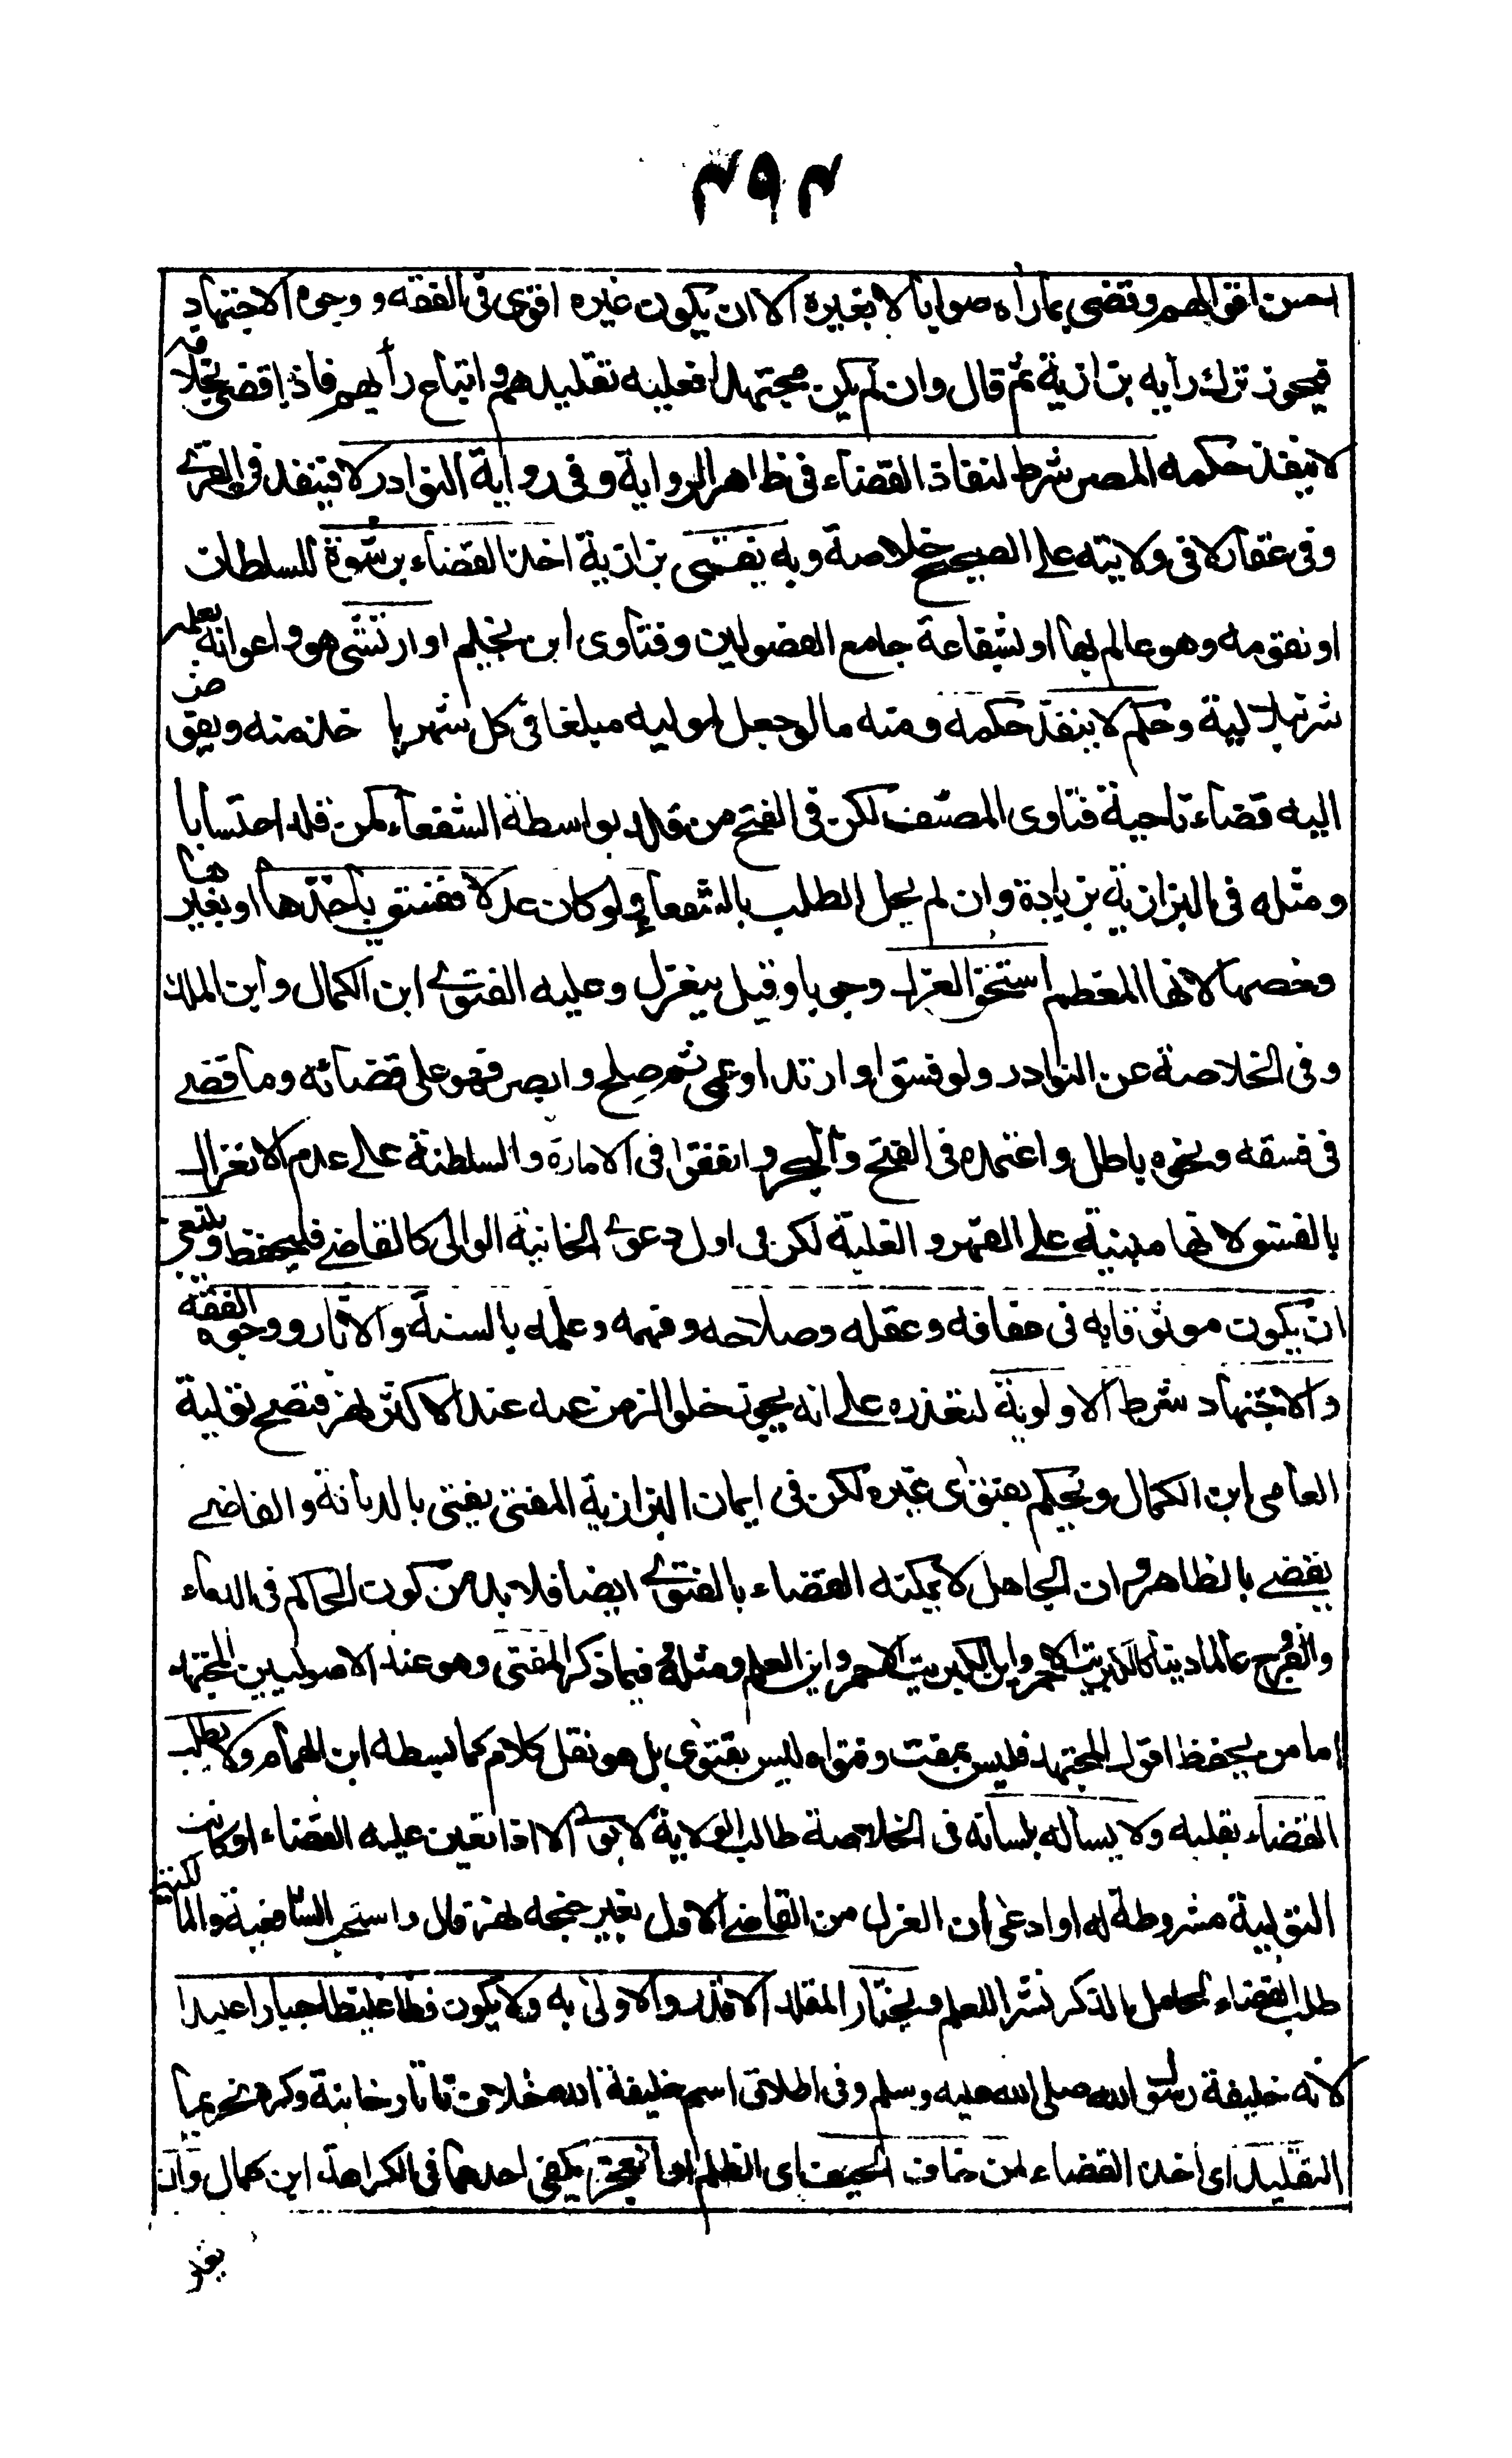 ٣٩٣
احسن اقوالهم وقضى بما رآه صوابا لا بغيره الا ان يكون غيره اقوى فى الفقه ووجوه الاجتهاد
فيجوز ترك رأيه بزازية ثم قال وان لم يكن مجتهدا فعليه تقليدهم واتباع رأيهم فاذا قضى بخلافه
لا ينفذ حكمه المصر شرط لنفاذ القضاء فى ظاهر الرواية وفى رواية النوادر لا فينفذ فى القرى
وفى عقار لا فى ولايته على الصحيح خلاصة وبه يفتى بزازية اخذ القضاء برشوة للسلطان
او لقومه وهو عالم بها او بشفاعة جامع الفصولين وفتاوى ابن نجيم او ارتشى هو او اعوانه بعلمه
شرنبلالية وحكم لا ينفذ حكمه ومنه ما لو جعل لموليه مبلغا فى كل شهر يا خذه منه ويفوض
اليه قضاء ناحية فتاوى المصنف لكن فى الفتح من قلد بواسطة الشفعاء كمن قلد احتسابا
ومثله فى البزازية بزيادة وان لم يحل الطلب بالشفعاء ولو كان عدلا ففسق باخذها او بغيرها
وخصها لانها المعظم استحق العزل وجوبا وقيل ينعزل وعليه الفتوى ابن الكمال وابن الملك
وفى الخلاصة عن النوادر ولو فسق او ارتد او عمى ثم صلح وابصر فهو على قضائه وما قضى
فى فسقه ونحوه باطل واعتمده فى الفتح والبحر واتفقوا فى الامارة والسلطنة على عدم الانعزال
بالفسق لانها مبنية على القهر والغلبة لكن فى اول دعوى الخانية الوالى كالقاضى فليحفظ وينبغى
ان يكون موثوقا به فى عفافه وعقله وصلاحه وفهمه وعلمه بالسنة والاثار ووجوه الفقه
والاجتهاد شرط الاولوية لتعذره على انه يجوز خلو الزمن عنه عند الاكثر نهر فتصح تولية
العامى ابن الكمال ويحكم بفتوى غيره لكن فى ايمان البزازية المفتى يفتى بالديانة والقاضى
يقضى بالظاهر وان الجاهل لا يمكنه القضاء بالفتوى ايضا فلا بد من كون الحاكم فى الدماء
والفروج عالما دينا كالكبريت الاحمر وابن الكبريت الاحمر واين العلم ومثله فيما ذكر المفتى وهو عند الاصوليين المجتهد
اما من يحفظ اقول المجتهد فليس بمفت وفتواه ليس بفتوى بل هو نقل كلام كما بسطه ابن الهمام ولا يطلب
القضاء بقلبه ولا يساله بلسانه فى الخلاصة طالب الولاية لا يولى الا اذا تعين عليه القضاء او كانت
التولية مشروطة له او ادعى ان العزل من القاضى الاول بغير جنحه نهر قال واستحب الشافعية والمالكية
طلب القضاء لخامل الذكر لنشر العلم ويختار المقلد الاقدر والاولى به ولا يكون فظا غليظا جبارا عنيدا
لانه خليفة رسول الله صلى الله عليه وسلم وفى اطلاق اسم خليفة الله خلاف تاتارخانية وكره تحريما
التقليد اى اخذ القضاء لمن خاف الحيف اى الظلم او العجز يكفى احدهما فى الكراهة ابن كمال وان